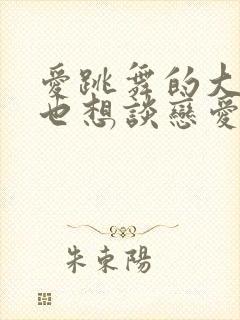 愛跳舞的大
也想談戀愛
朱東陽